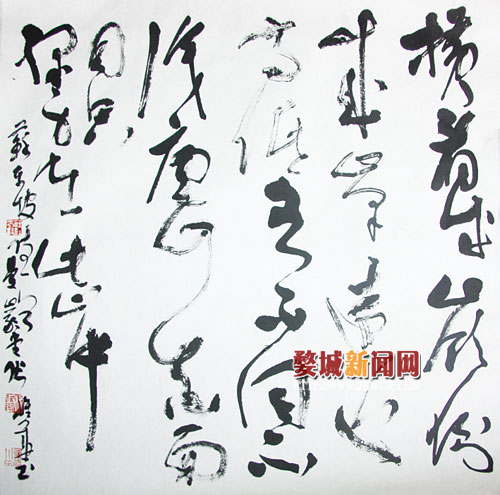 横看成岭侧
成峰远近
高低各不同不
识庐山真面
目只
缘身在此山中
苏东坡诗一首
婺城新闻网